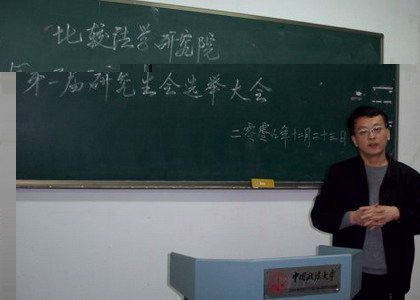 比较法学研究院
第二届研究生会选举大会
二零零九年十二月二十三日
中国政法大学